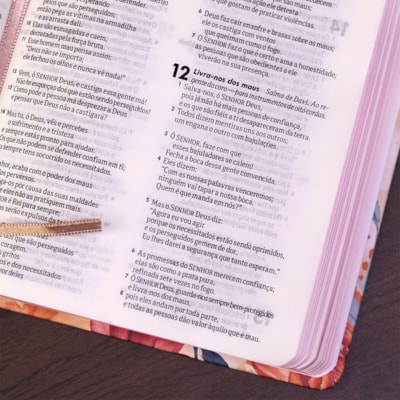 são perseguidos pelos
e as arrasta dali.
pelo peso as vítimas na armadilha
Elas são esmagadas e caem,
derrotadas pela força bruta.
11 Esse homem mau pensa assim:
"Deus não se importa;
ele fechou os olhos e nunca vê nada!"
12 Vem, ó SENHOR Deus, e castiga essa gente má!
Não te esqueças dos que estão sendo perseguidos!
13 Como pode a pessoa má desprezar a Deus
e pensar que Deus não a castigará?
14 Mas tu, ó Deus, vês e percebes
o sofrimento e a tristeza
e sempre estás pronto para ajudar.
que não podem se defender confiam em ti;
sempre tens socorrido os necessitados.
com o poder dos maus
por causa das suas maldades
expulsos da
que são perseguidos
coragem.
gritos
e dos necessitados
deles
gostam de praticar violências.
6 Deus faz cair enxofre e brasas sobre os maus;
ele os castiga com ventos
que queimam como o fogo.
7 O SENHOR faz o que é certo e ama a honestidade;
as pessoas que são obedientes a ele
viverão na sua presença.
12 Livra-nos dos maus Salmo de Davi. Ao re-
gente do coro — para instrumentos de oito cordas.
1 Salva-nos, ó SENHOR Deus,
pois já não há mais pessoas de confiança,
e os que são fiéis a ti desapareceram da terra.
2 Todos dizem mentiras uns aos outros;
um engana o outro com bajulações.
3 Ó SENHOR, faze com que
esses bajuladores se calem!
Fecha a boca dessa gente convencida.
4 Eles dizem:
"Com as nossas palavras venceremos;
ninguém vai tapar a nossa boca.
Quem é que manda em nós?"
5 Mas o SENHOR Deus diz:
"Agora eu vou agir
porque os necessitados estão sendo oprimidos,
e os perseguidos gemem de dor.
Eu lhes darei a segurança que tanto esperam."
6 As promessas do SENHOR merecem confiança;
elas são como a prata pura,
refinada sete vezes no fogo.
7 Ó SENHOR Deus, guarda-nos sempre bem protegidos
e livra-nos dos maus,
8 pois eles andam por toda parte,
e todas as pessoas dão valor àquilo que é mau.